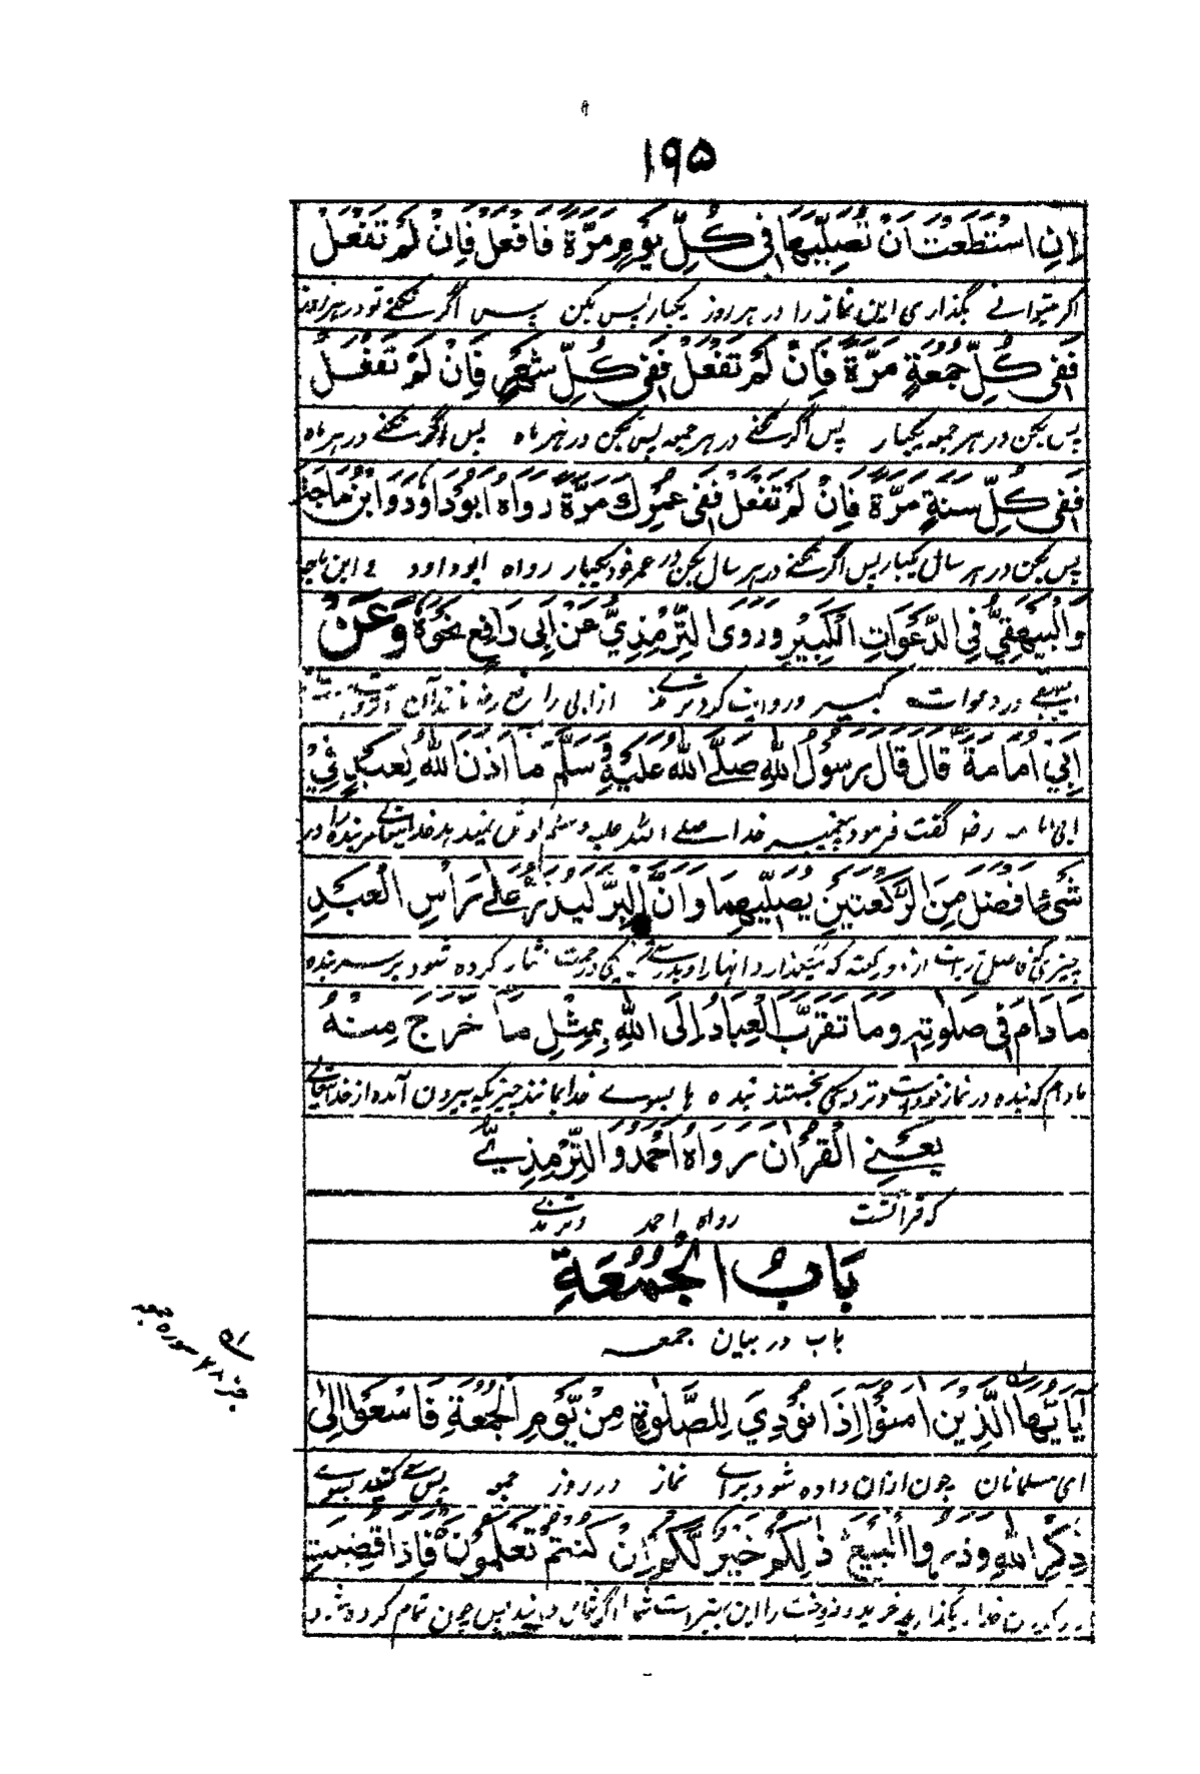 ۱۹۵
اِنِ اسْتَطَعْتَ اَنْ تُصَلِّیَهَا فِی کُلِّ یَوْمٍ مَرَّةً فَافْعَلْ فَاِنْ لَمْ تَفْعَلْ
اگر میتوانے بگذاری این نماز را در هر روز یکبار پس بکن پس اگر نکنے تو در هر روز
فَفِی کُلِّ جُمُعَةٍ مَرَّةً فَاِنْ لَمْ تَفْعَلْ فَفِی کُلِّ شَهْرٍ فَاِنْ لَمْ تَفْعَلْ
پس بکن در هر جمعه یکبار پس اگر نکنے در هر جمعه پس بکن در هر ماه پس اگر نکنے در هر ماه
فَفِی کُلِّ سَنَةٍ مَرَّةً فَاِنْ لَمْ تَفْعَلْ فَفِی عُمُرِكَ مَرَّةً رَوَاهُ اَبُوْدَاوُدَ وَابْنُ مَاجَةَ
پس بکن در هر سال یکبار پس اگر نکنے در هر سال بکن در عمر خود یکبار رواه ابو داود و ابن ماجه
وَالْبَیْهَقِیُّ فِی الدَّعَوَاتِ الْکَبِیْرِ وَرَوَی التِّرْمِذِیُّ عَنْ اَبِی رَافِعٍ نَحْوَهُ وَعَنْ
بیهقے در دعوات کبیر و روایت کرد ترمذے از ابی رافع رض مانند آن
اَبِیْ اُمَامَةَ قَالَ قَالَ رَسُوْلُ اللهِ صَلَّی اللهُ عَلَیْهِ وَسَلَّمَ مَا اَذِنَ اللهُ لِعَبْدٍ فِیْ
ابی امامه رض گفت فرمود پیغمبر خدا صلے الله علیه وسلم خدایتعالے مر بنده را در
شَیْءٍ اَفْضَلَ مِنَ الرَّکْعَتَیْنِ یُصَلِّیْهِمَا وَاِنَّ الْبِرَّ لَیُذَرُّ عَلٰی رَأْسِ الْعَبْدِ
چیزی که فاضل تر است از دو رکعت که میگذارد انها را و بدرستیکه نیکی و رحمت نثار کرده شود بر سر بنده
مَا دَامَ فِی صَلٰوتِهٖ وَمَا تَقَرَّبَ الْعِبَادُ اِلَی اللهِ بِمِثْلِ مَا خَرَجَ مِنْهُ
مادام که بنده در نماز خود است و نزدیکی نجستند بنده ها بسوے خدا بمانند چیزیکه بیرون آمده از خدایتعالے
یَعْنِی الْقُرْاٰنَ رَوَاهُ اَحْمَدُ وَالتِّرْمِذِیُّ
که قرآنست رواه احمد و ترمذے
بَابُ الْجُمُعَةِ
باب در بیان جمعه
جز ۲۸ سوره جمعه
یٰاَیُّهَا الَّذِیْنَ اٰمَنُوْا اِذَا نُوْدِیَ لِلصَّلٰوةِ مِنْ یَّوْمِ الْجُمُعَةِ فَاسْعَوْا اِلٰی
ای مسلمانان چون اذان داده شود براے نماز در روز جمعه پس سعے کنید بسوے
ذِکْرِ اللهِ وَذَرُوا الْبَیْعَ ذٰلِکُمْ خَیْرٌ لَّکُمْ اِنْ کُنْتُمْ تَعْلَمُوْنَ فَاِذَا قُضِیَتِ
خدا و بگذارید خرید و فروخت را این بهتر است شما را اگر شما میدانید پس چون تمام کرده شود